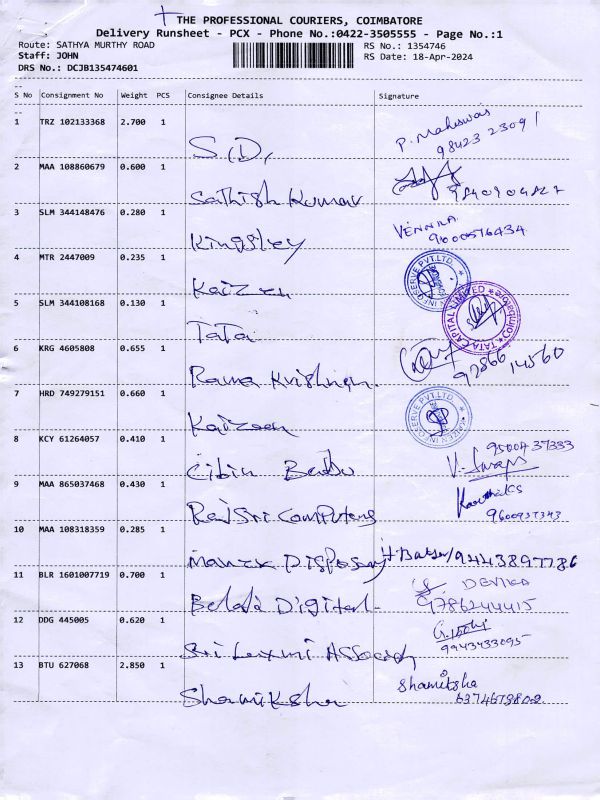 THE PROFESSIONAL COURIERS, COIMBATORE
Delivery Runsheet - PCX - Phone No.:0422-3505555 - Page No.:1
Route: SATHYA MURTHY ROAD RS No.: 1354746
Staff: JOHN RS Date: 18-Apr-2024
DRS No.: DCJB135474601
S No Consignment No Weight PCS Consignee Details Signature
1 TRZ 102133368 2.700 1
P. Maheswari
98423 23091
S.D,
2 MAA 108860679 0.600 1
Sathish Kumar
3 SLM 344148476 0.280 1
VENNILA
9600576434
Kingsley
4 MTR 2447009 0.235 1
Kaizen
5 SLM 344108168 0.130 1
TATA CAPITAL LIMITED
Coimbatore
Tata
6 KRG 4605808 0.655 1
92866 14560
Rama Krishnan.
7 HRD 749279151 0.660 1
KAIZEN INFOSERVE PVT.LTD.
Kaizeen
8 KCY 61264057 0.410 1
9500437333
Cibin Babu
9 MAA 865037468 0.430 1
9600937343
RajSri Computers
10 MAA 108318359 0.285 1
9443897786
11 BLR 1601007719 0.700 1
DEVIKA
9786244415
Digital
12 DDG 445005 0.620 1
9943433095
Sri Laxmi
13 BTU 627068 2.850 1
Shamiksha
6374673802
Shamiksha